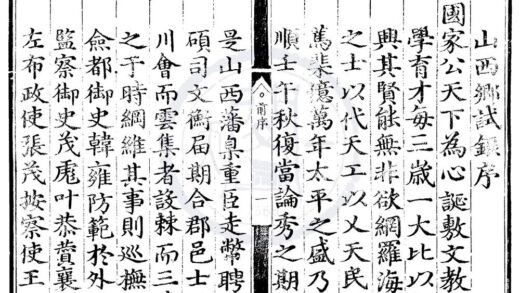 山西鄉試錄序
國家公天下為心誕敷文教
學育才每三歲一大比以
興其賢能無非欲網羅海
之士以代天工以乂天民
篤棐億萬年太平之盛乃
順壬午秋復當論秀之期
前序
一
是山西藩臬重臣走幣聘
碩司文衡届期合郡邑士
川會而雲集者設棘而三
之于時綱維其事則巡撫
僉都御史韓雍防範於外
監察御史茂彪叶恭賛襄
左布政使張茂按察使王